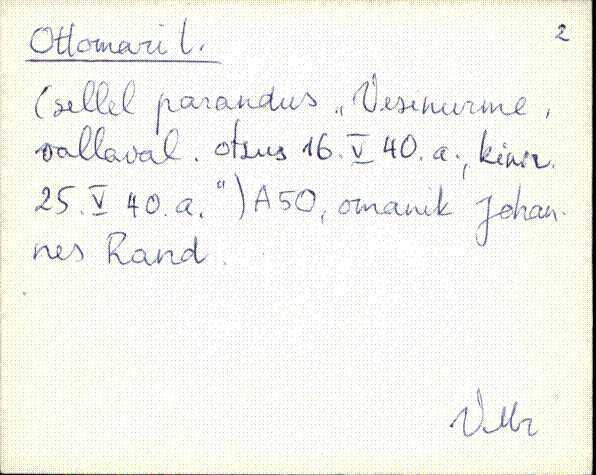 2
Ottomari t.
(sellel parandus „Vesenurme,
vallaval. otsus 16. V 40. a., kinn.
25. V 40. a.") A50, omanik Johan-
nes Rand.
VMr